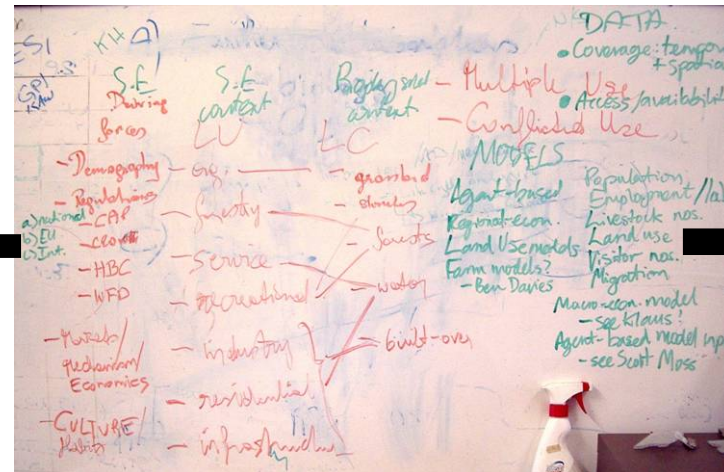 KH
A)
S.E
Driving
forces
- Demography
- Regulations
a) national
b) EU
c) Int.
- CAP
- HBC
- WFD
- Markets/
Mechanism/
Economics
- CULTURE/
Habits
S.E
context
LU
- forestry
- service
- recreational
- industry
- residential
context
LC
- grassland
- forests
- water
- built-over
- Multiple Use
- Conflicted Use
MODELS
Agent-based
Regional-econ.
Land Use models
Farm models?
- Ben Davies
DATA
• Coverage: tempor
+ spatia
• Access/availabilit
Population
Employment/
Livestock nos.
Land use
Visitor nos.
Migration
Macro-econ. model
- see Klaus!
Agent-based model inp
- see Scott Moss